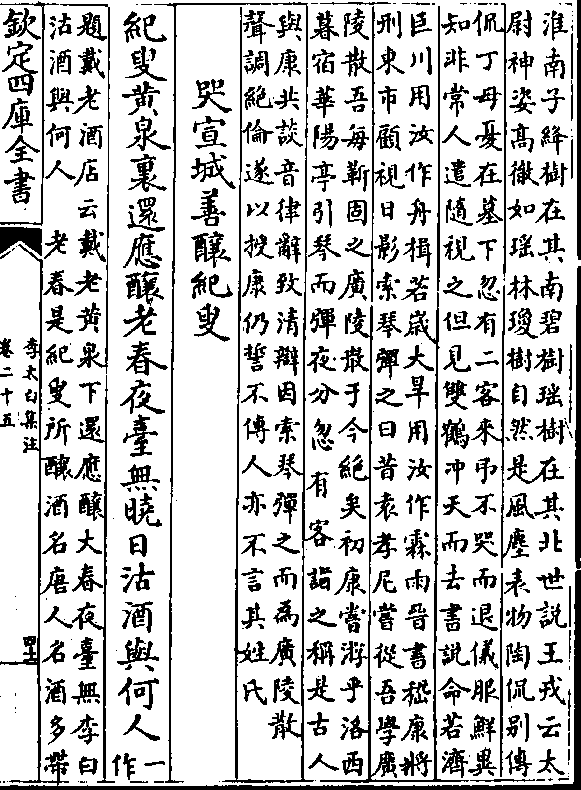 淮南子絳樹在其南碧樹瑶樹在其北世説王戎云太
尉神姿高徹如瑶林瓊樹自然是風塵表物陶侃别傳
侃丁母憂在墓下忽有二客來弔不哭而退儀服鮮異
知非常人遣隨視之但見雙鶴冲天而去書説命若濟
巨川用汝作舟楫若歲大旱用汝作霖雨晉書嵇康將
刑東市顧視日影索琴彈之曰昔袁孝尼嘗從吾學廣
陵散吾每靳固之廣陵散于今絶矣初康嘗游乎洛西
暮宿華陽亭引琴而彈夜分忽有客詣之稱是古人
與康共談音律辭致清辯因索琴彈之而為廣陵散
聲調絶倫遂以授康仍誓不傳人亦不言其姓氏
哭宣城善釀紀叟
紀叟黄泉裏還應釀老春夜臺無曉日沽酒與何人一作
題戴老酒店云戴老黄泉下還應釀大春夜臺無李白
沽酒與何人 老春是紀叟所釀酒名唐人名酒多帶
欽定四庫全書
李太白集注
卷二十五